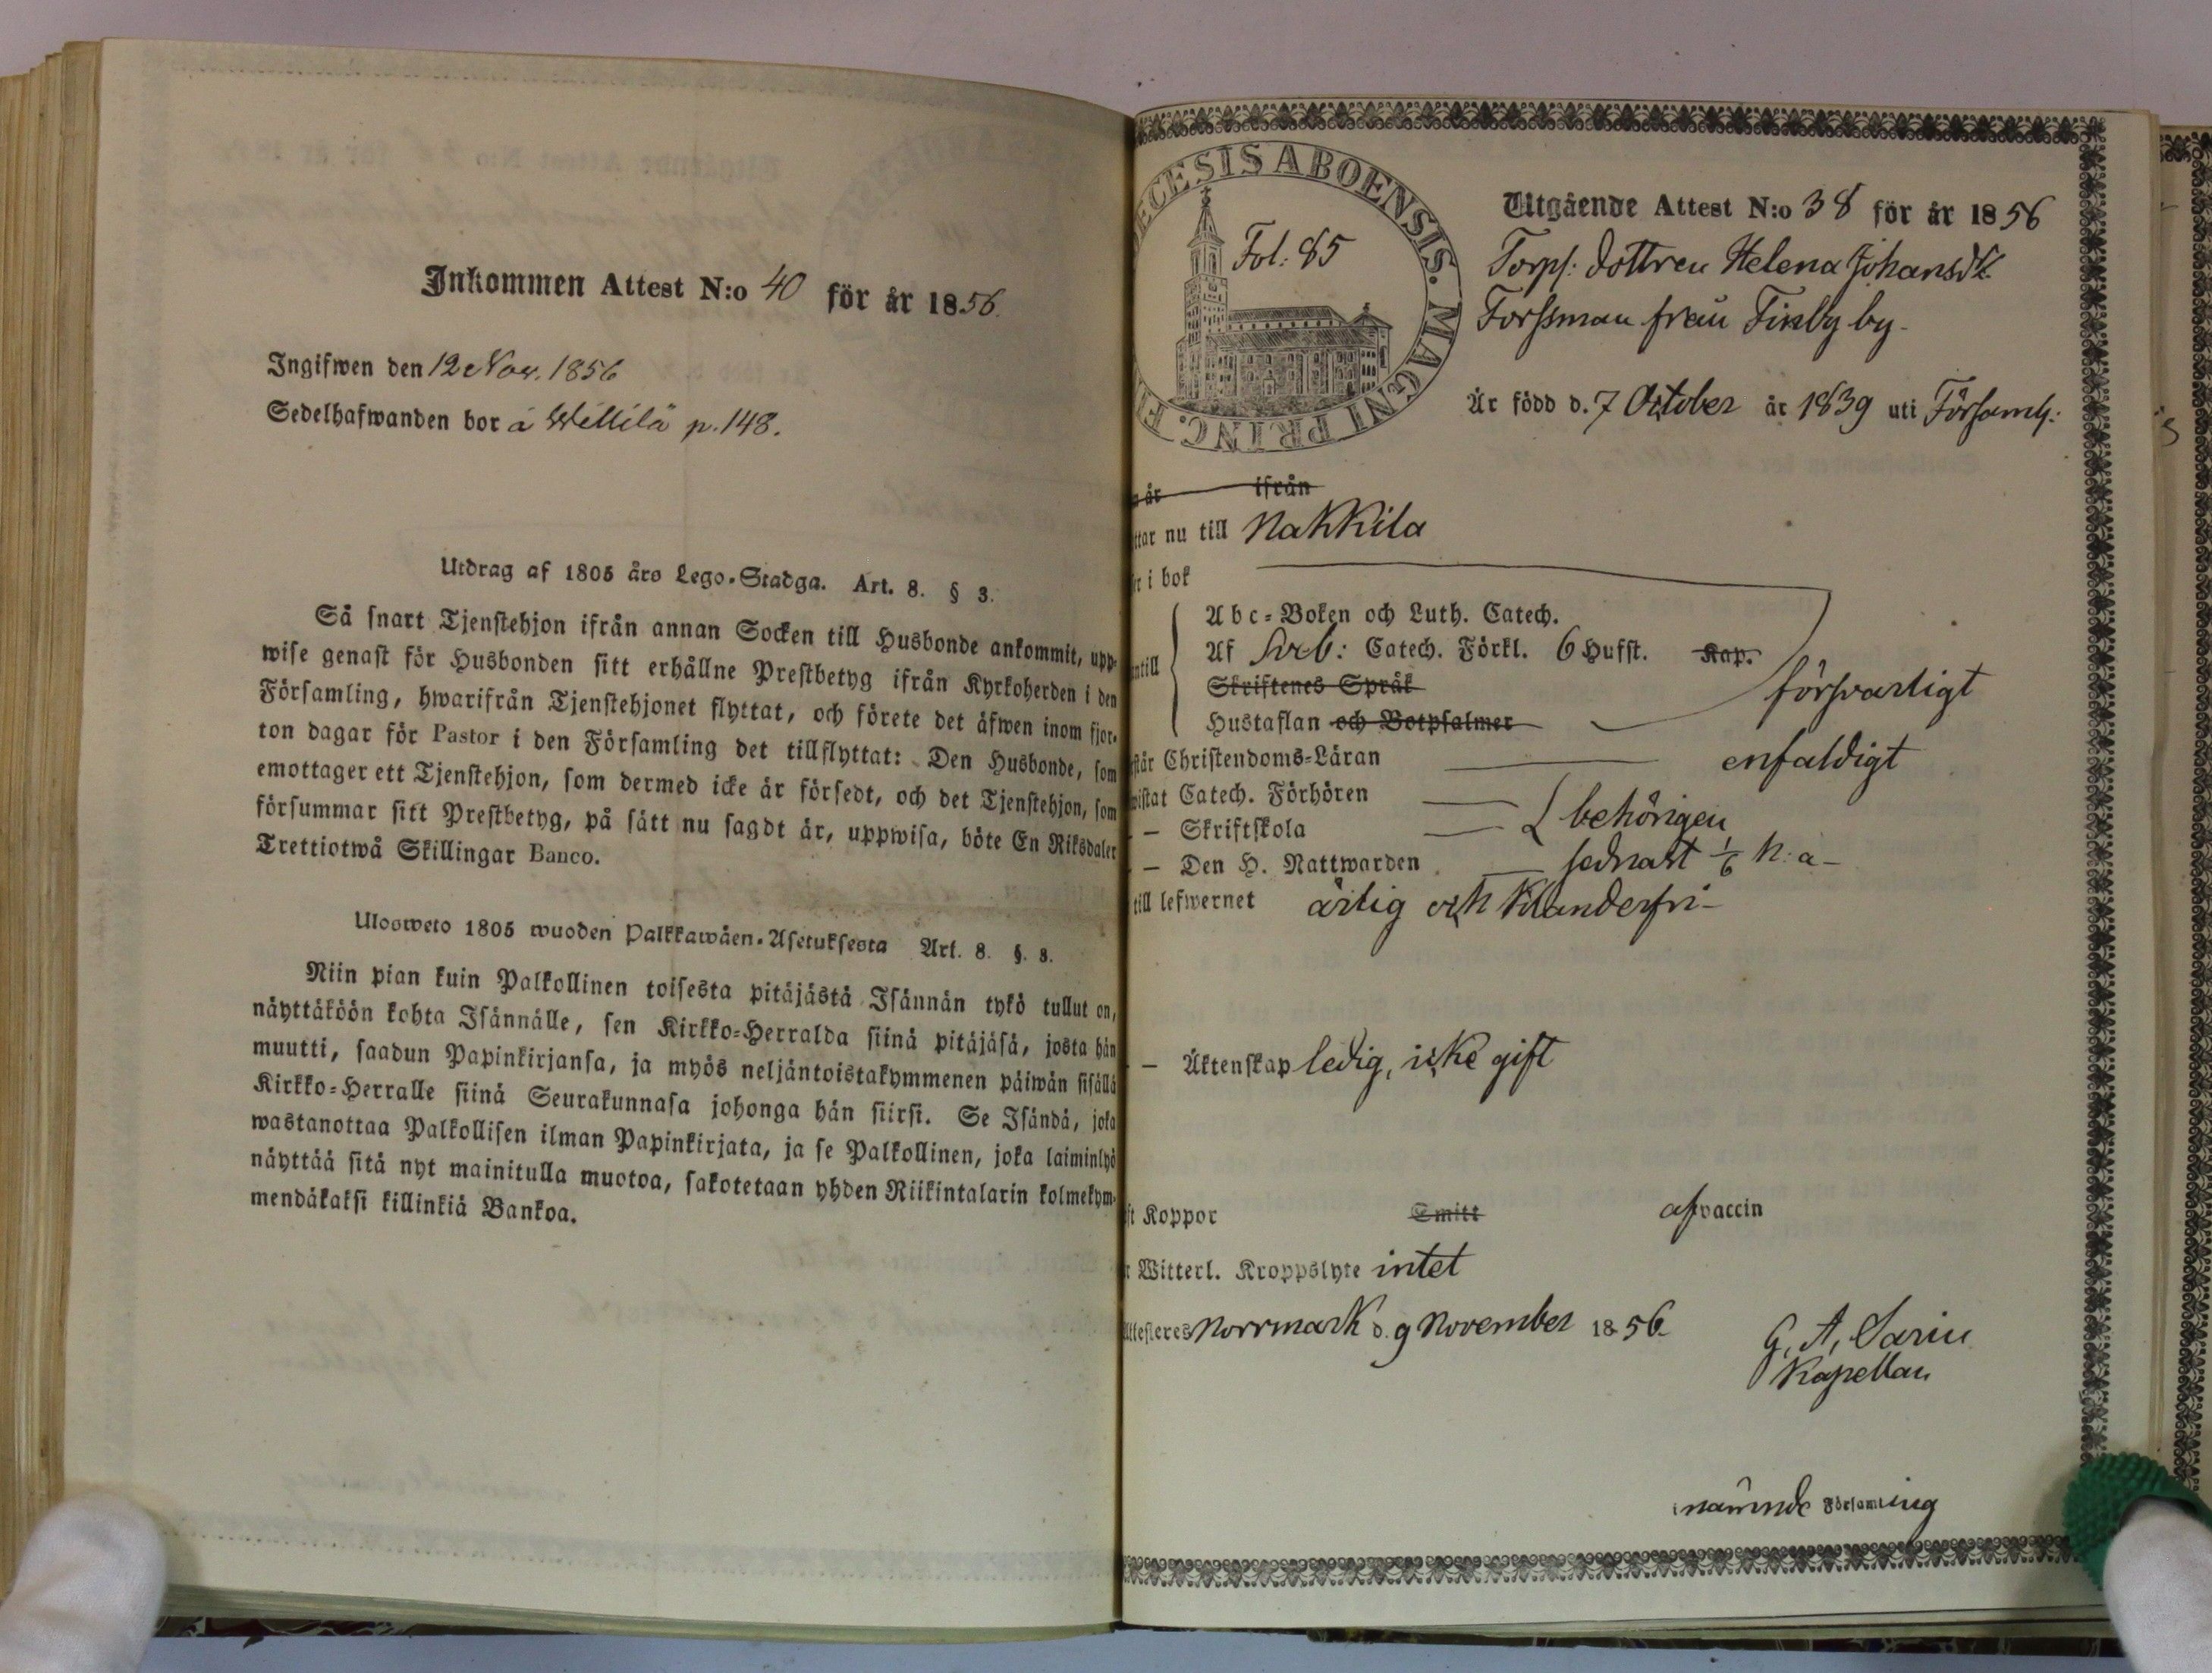 Inkommen Attest N:o 40 för år 1856.
Ingifwen den 12 Nov. 1856
Sedelhafwanden bor á Willilä p. 148.
Utdrag af 1805 års Lego-Stadga. Art. 8. § 3.
Så snart Tjenstehjon ifrån annan Socken till Husbonde ankommit, upp-
wise genast för Husbonden sitt erhållne Prestbetyg ifrån Kyrkoherden i den
Församling, hwarifrån Tjenstehjonet flyttat, och förete det äfwen inom fjor-
ton dagar för Pastor i den Församling det tillflyttat: Den Husbonde, som
emottager ett Tjenstehjon, som dermed icke är försedt, och det Tjenstehjon, som
försummar sitt Prestbetyg, på sätt nu sagdt är, uppwisa, böte En Riksdaler
Trettiotwå Skillingar Banco.
Ulosweto 1805 wuoden Palkkawäen-Asetuksesta Art. 8. §. 3.
Niin pian kuin Palkollinen toisesta pitäjästä Isännän tykö tullut on,
näyttäköön kohta Isännälle, sen Kirkko-Herralda siinä pitäjäsä, josta hän
muutti, saadun Papinkirjansa, ja myös neljäntoistakymmenen päiwän sisällä
Kirkko-Herralle siinä Seurakunnasa johonga hän siirsi. Se Isändä, joka
wastanottaa Palkollisen ilman Papinkirjata, ja se Palkollinen, joka laiminlyö
näyttää sitä nyt mainitulla muotoa, sakotetaan yhden Riikintalarin kolmekym-
mendäkaksi killinkiä Bankoa.
ECESIS ABOENSIS. MAGNI PRINC. F
Fol: 85
Utgående Attest N:o 38 för år 1856
Torps: dottren Helena Johansdr
Forssman från Finby by.
Är född d. 7 October år 1839 uti Församl:
år ifrån
ttar nu till Nakkila
i bok
Abc-Boken och Luth. Catech.
Af Sveb: Catech. Förkl. 6 Hufst. Kap.
ntill
Skriftenes Språk
försvarligt
Hustaflan och Botpsalmer
står Christendoms-Läran enfaldigt
wistat Catech. Förhören
— Skriftskola behörigen
— Den H. Nattwarden sednast 1/6 h: a
till lefwernet ärlig och klanderfri
— Äktenskap ledig, icke gift
ft Koppor Smitt af vaccin
r Witterl. Kroppslyte intet
Attesteres Norrmark d. 9 November 1856.
G. A. Sarin
Kapellan
i närmnde Församling